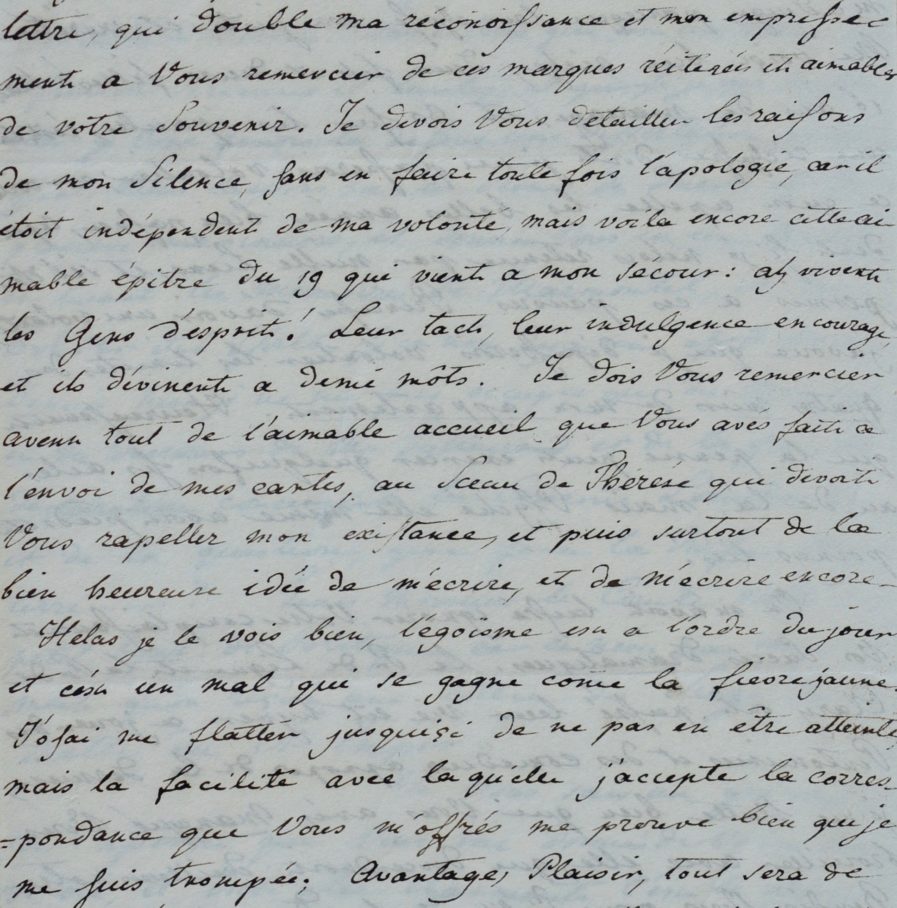 lettre, qui double ma réconoissance et mon empresse-
ment a Vous remercier de ces marques réiterées et aimables
de votre Souvenir. Je devois Vous detailler les raisons
de mon Silence, sans en faire toute fois l'apologie, car il
étoit indépendent de ma volonté, mais voila encore cette ai
mable épitre du 19 qui vient a mon sécour: ah vivent
les Gens d'esprit! Leur tact, leur indulgence encourage,
et ils dévinent a demi môts. Je dois Vous remercier
avent tout de l'aimable accueil que Vous avés fait a
l'envoi de mes cartes, au Sceau de Thérése qui devoit
Vous rapeller mon existance, et puis surtout de la
bien heureuse idée de m'écrire, et de m'écrire encore-
Helas je le vois bien, l'égoïsme est a l'ordre du jour
et c'ést un mal qui se gagne come la fievre jaune.
J'osai me flatter jusquiçi de ne pas en être atteinte,
mais la facilité avec laquelle j'accepte la corres-
=pondance que Vous m'offrés me prouve bien que je
me suis trompée; Avantage, Plaisir, tout sera de